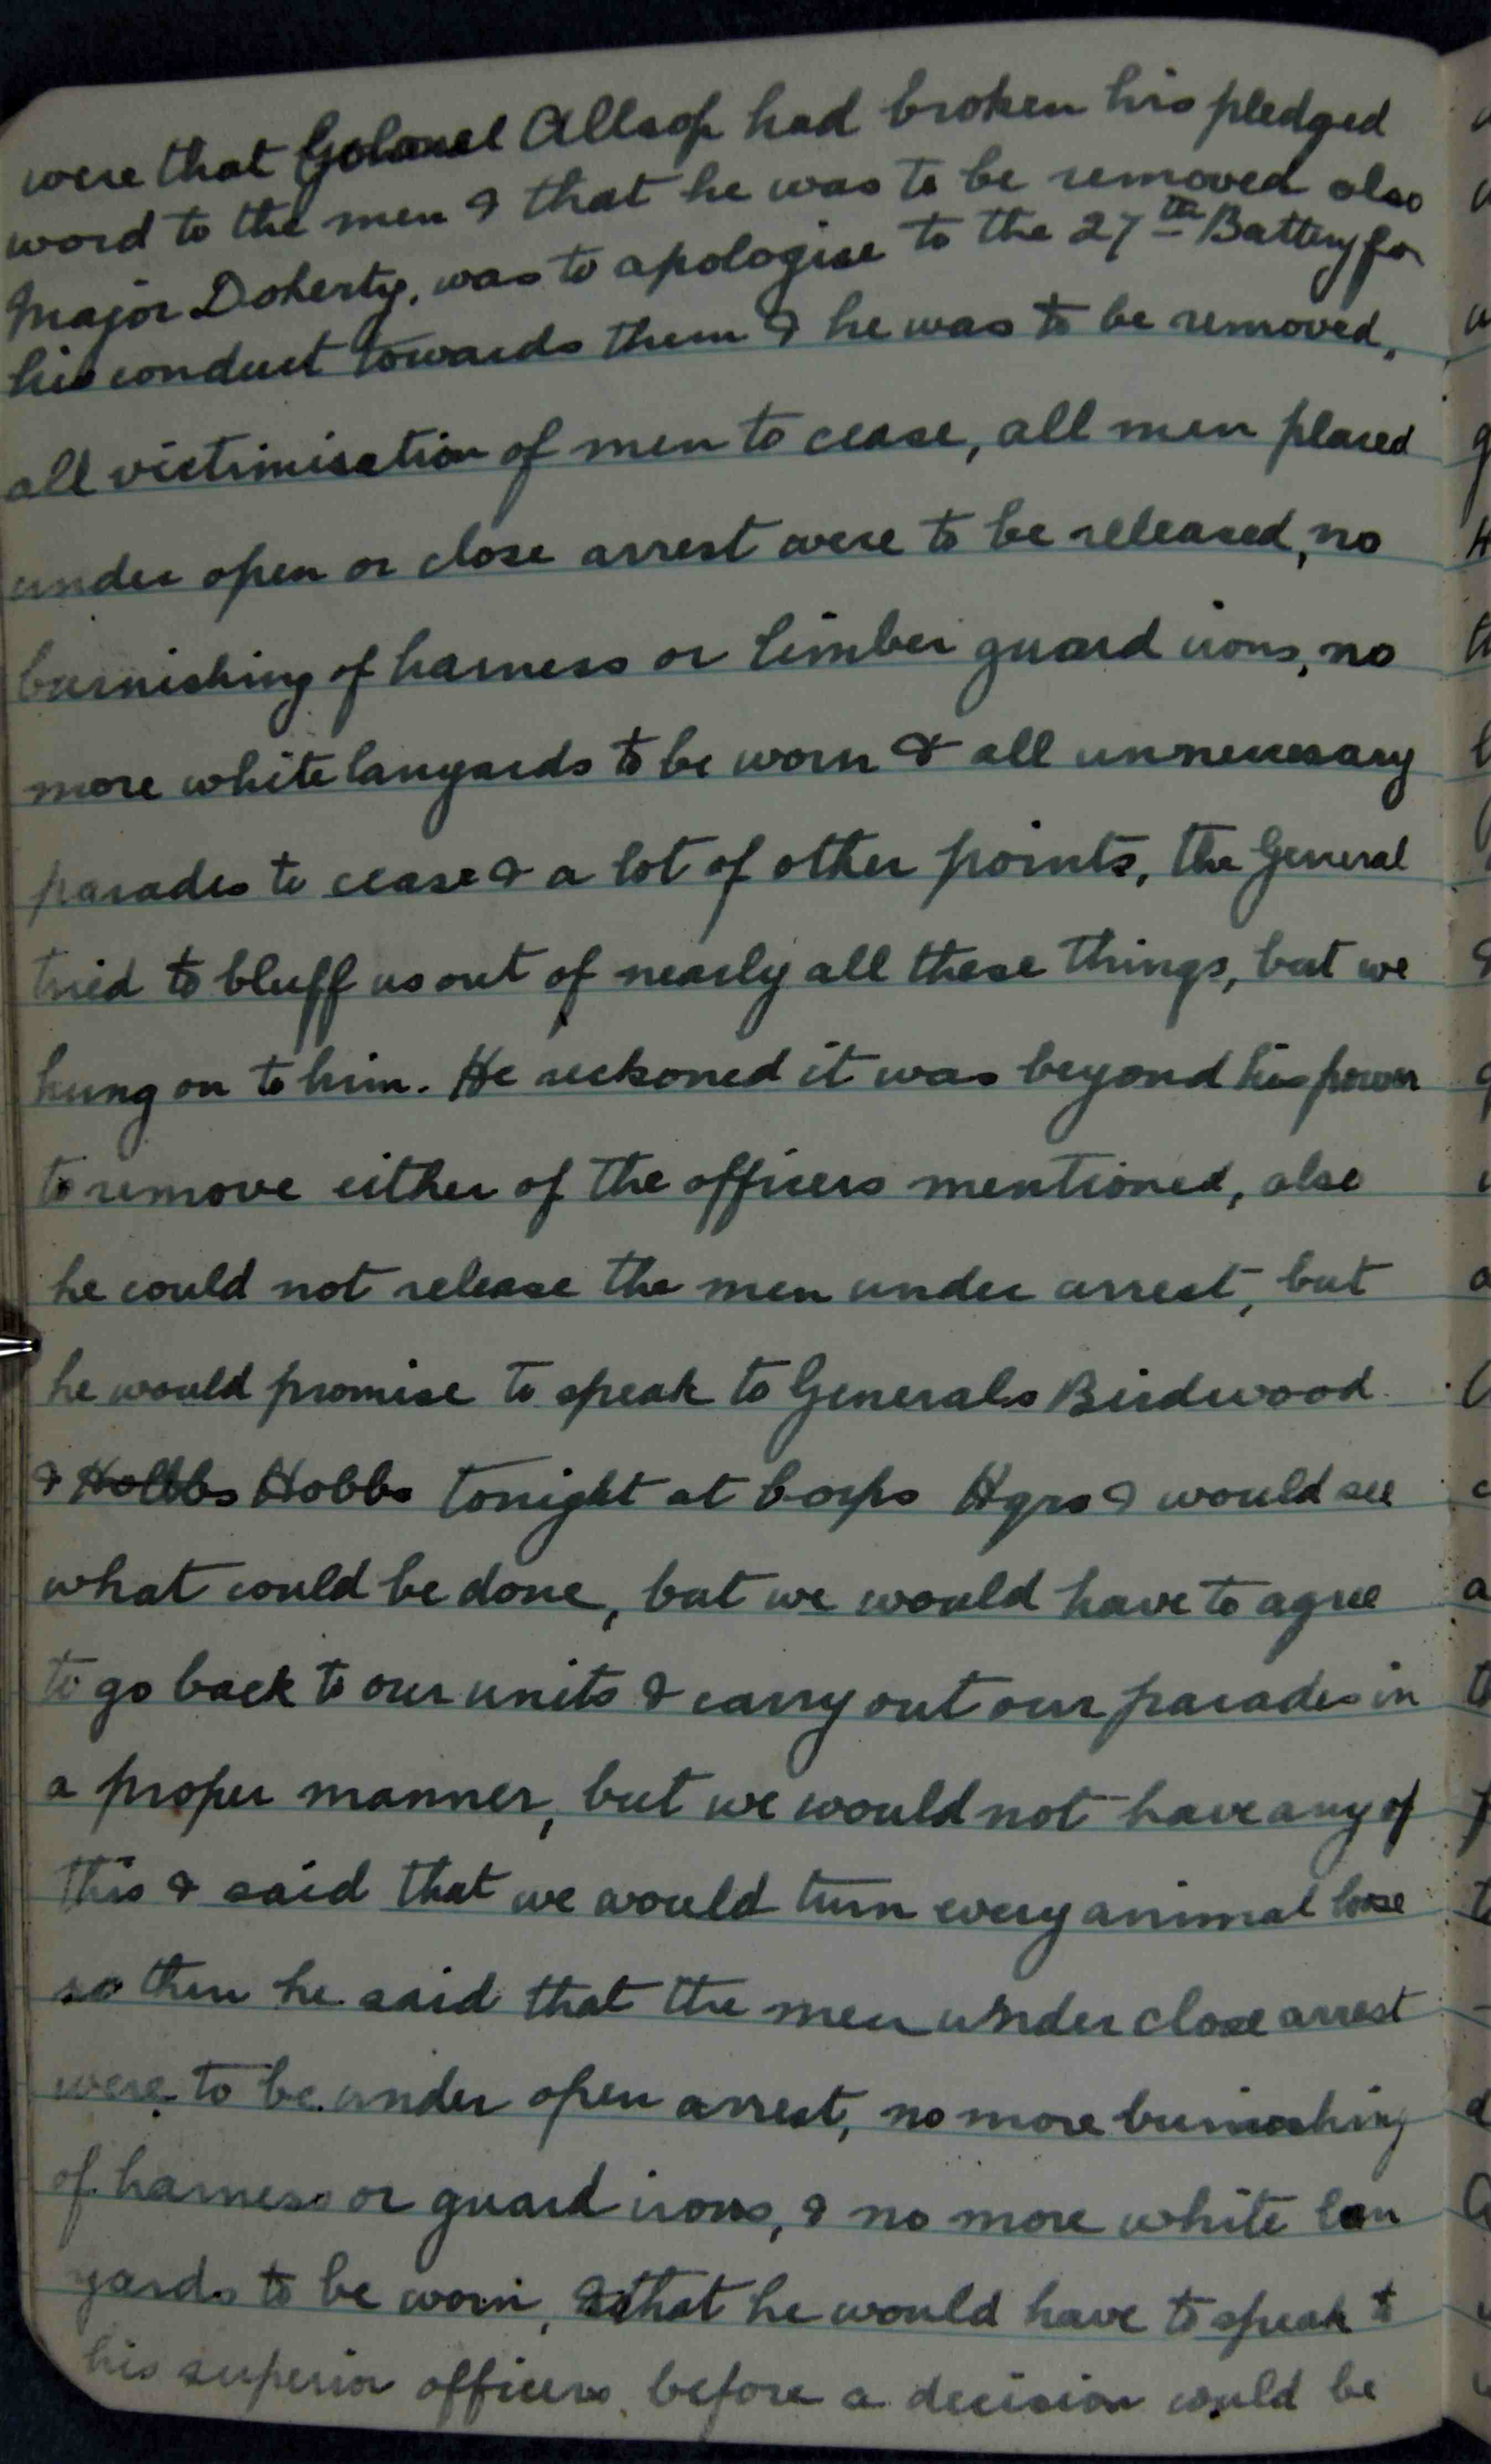 were that Colonel Allsop had broken his pledged
word to the men & that he was to be removed also
Major Doherty, was to apologise to the 27th Battery for
his conduct towards them & he was to be removed,
all victimisation of men to cease, all men placed
under open or close arrest were to be released, no
burnishing of harness or limber guard irons, no
more white lanyards to be worn & all unnecessary
parades to cease & a lot of other points, the General
tried to bluff us out of nearly all these things, but we
hung on to him. He reckoned it was beyond his power
to remove either of the officers mentioned, also
he could not release the men under arrest, but
he would promise to speak to Generals Birdwood
& Holbbs Hobbs tonight at Corps Hqrs & would see
what could be done, but we would have to agree
to go back to our units & carry out our parades in
a proper manner, but we would not have any of
this & said that we would turn every animal loose
so then he said that the men under close arrest
were to be under open arrest, no more burnishing
of harness or guard irons, & no more white lan
yards to be worn, & that he would have to speak to
his superior officers, before a decision could be